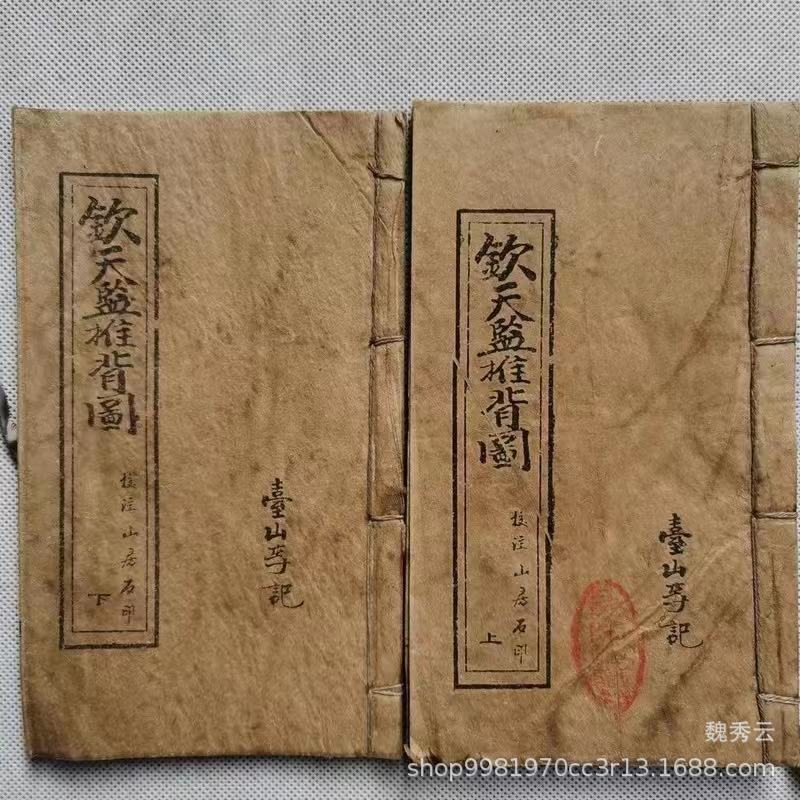 欽天監推背圖
校注山房石印
上
臺山李記
欽天監推背圖
校注山房石印
下
臺山李記
魏秀云
shop9981970cc3r13.1688.com